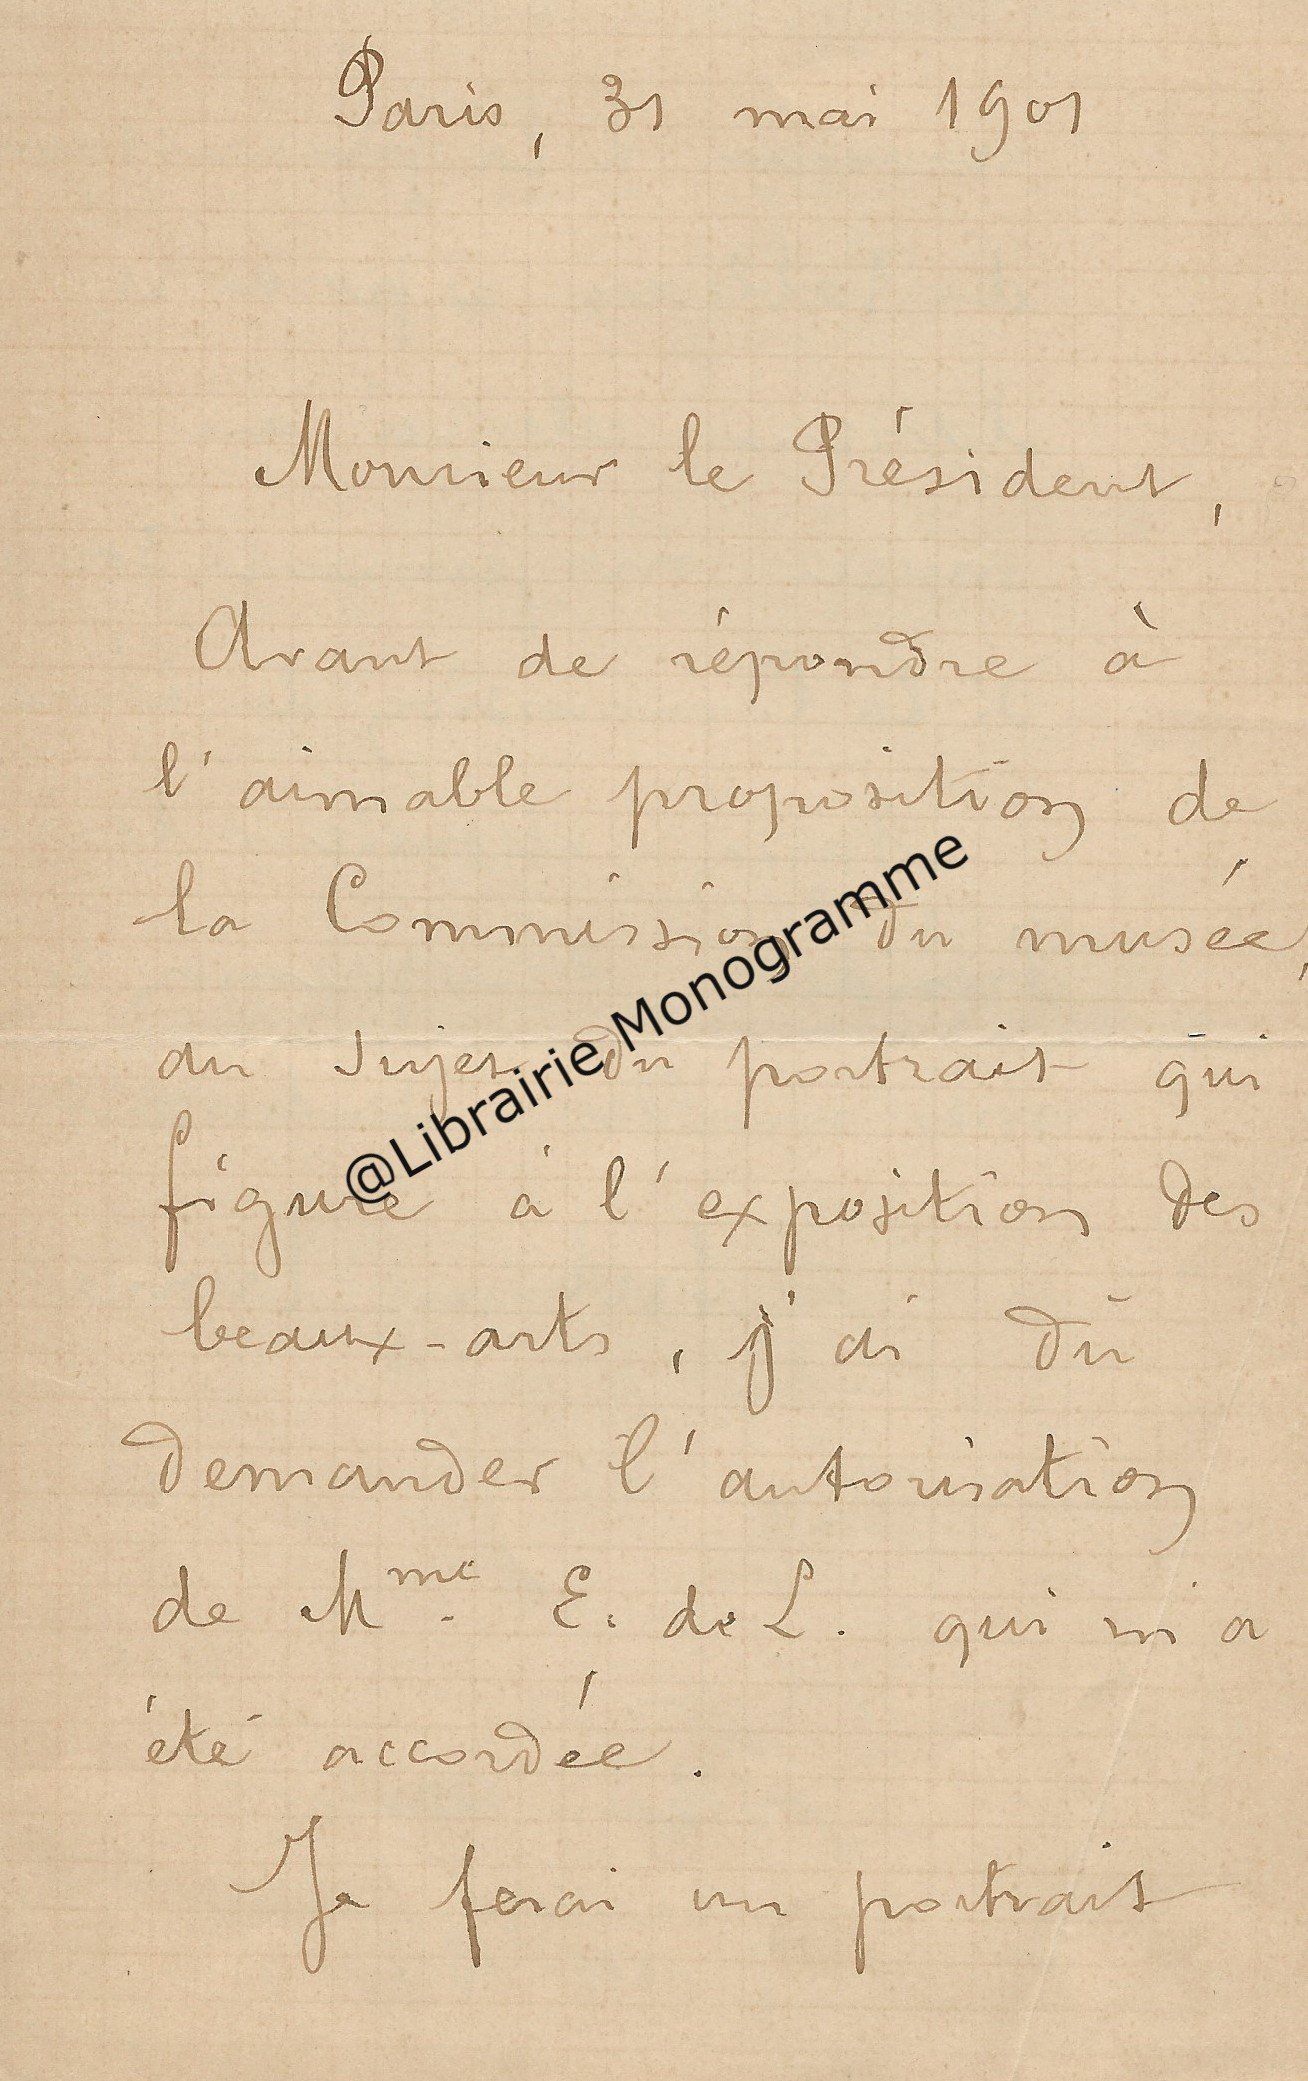 Paris, 31 mai 1901
Monsieur le Président,
Avant de répondre à
l'aimable proposition de
la Commission du musée,
au sujet du portrait qui
figure à l'exposition des
beaux-arts, j'ai dû
demander l'autorisation
de Mme. E. de L. qui m'a
été accordée.
Je ferai un portrait
@Librairie Monogramme